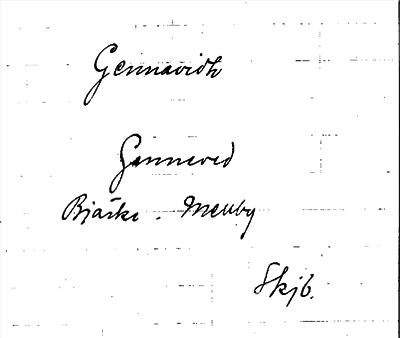 Gennavidh
Genneved
Bjärke - Mellby
Skjb.